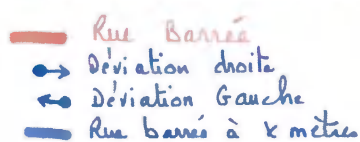 Rue Barrée
Déviation droite
Déviation Gauche
Rue barrée à x mètres